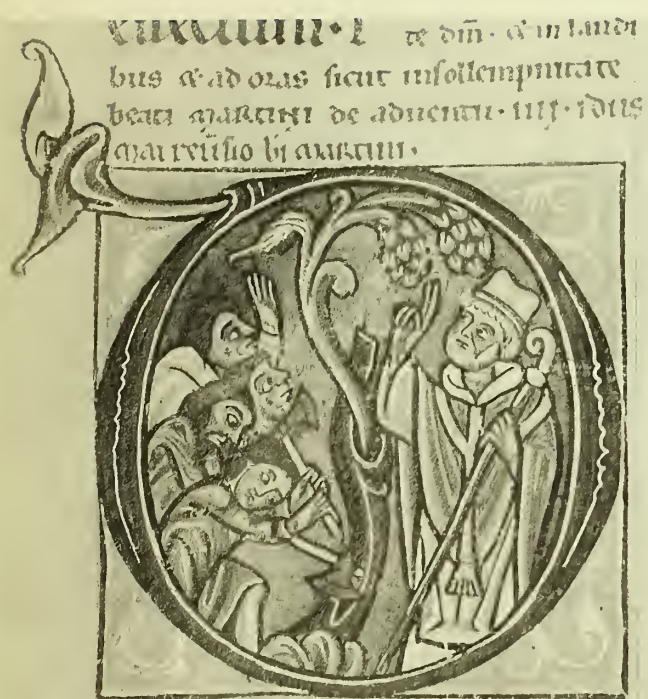 te dm̄. & in laudi
bus & ad oras sicut insollempnitate
beati martini de aduentu. iiij. idus
mai reūsio bi martini.